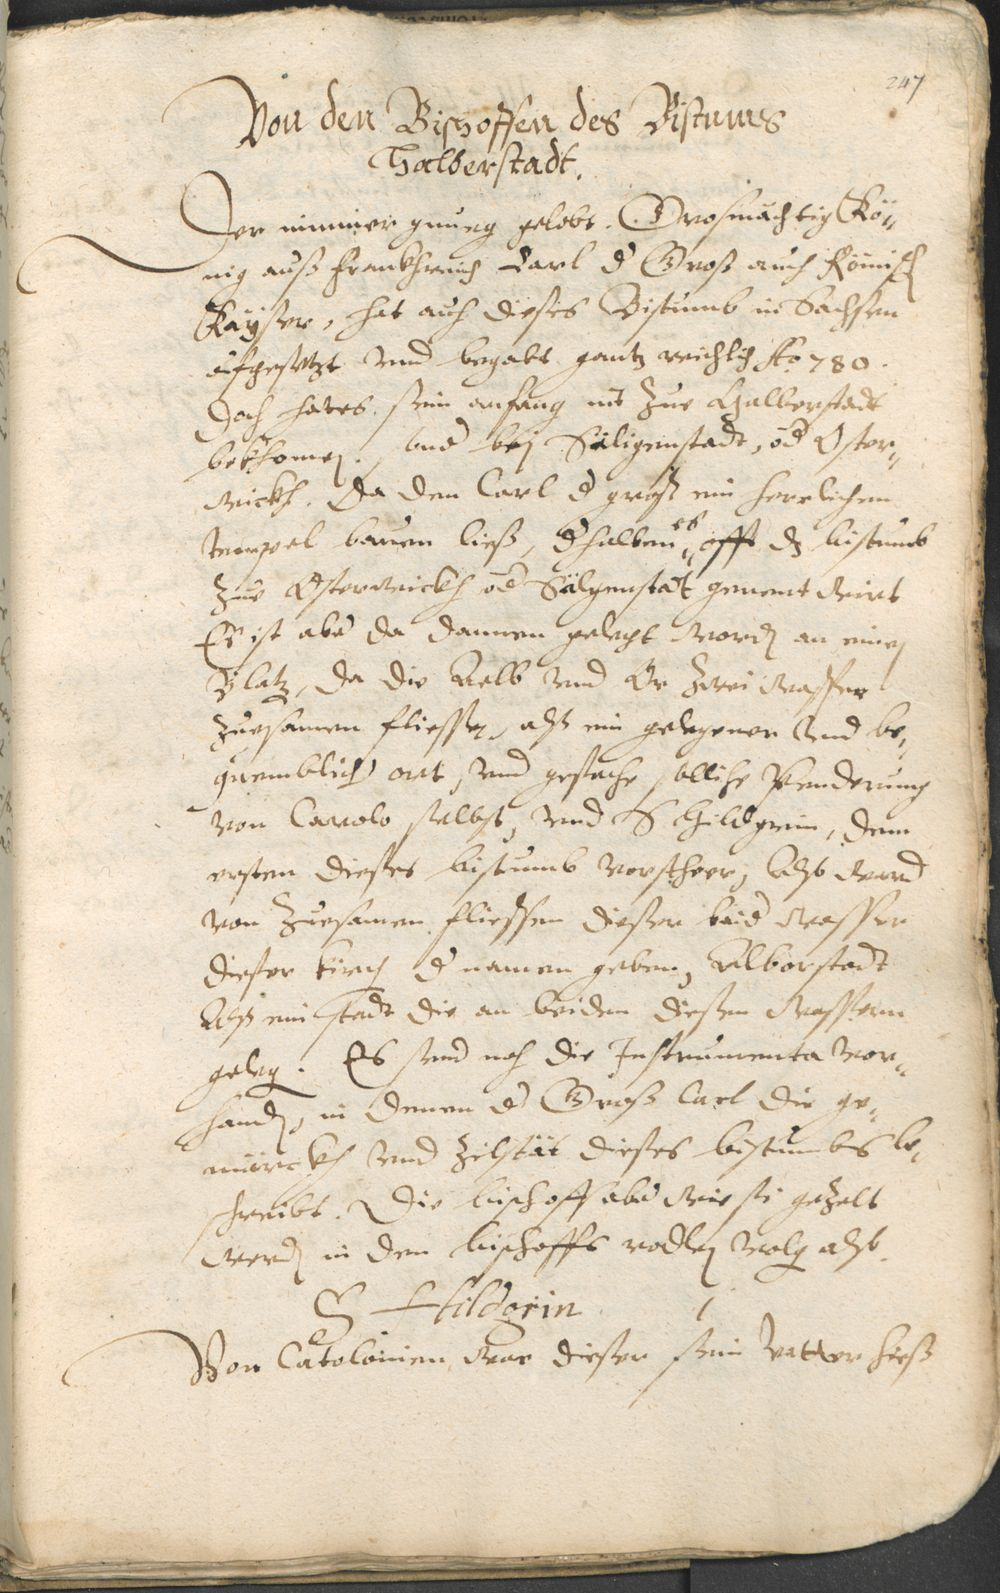 247
Von den Bischoffen des Bistums
Halberstadt.
Der nimmer gnueg gelobt. Grosmächtig Kö„
nig auß Frankhreich Carl d Groß auch Römisch
Kayser, hat auch dieses Bistumb in Sachsen
ufgesetzt vnd begabt gantz reichlich Ao 780.
Doch hat es sein anfang nit zue Halberstadt
bekhomen, sond bei Säligenstadt, od Oster„
wickh. Da den Carl d groß ein herrlichen
tempel bauen ließ, dhalben es offt dz bistumb
zue Osterwickh od Säligenstat genent wirt
Es ist abd da dannen gelegt word an einen
Platz, da die Aelb vnd Or zwei wasser
zuesamen fliessen, alß ein gelegener vnd be„
quemblich ort, vnd geschache sölliche Venderung
von Carolo selbst, vnd S Hildgrim, dem
ersten dieses bistumb vorsteher, Alß ward
von zuesamen fliessen dieser beid wasser
dieser kirch d namen geben, Alborstadt
Alß ein stadt die an beiden diesen wassern
geleg. Es sind noch die Instrumenta vor„
hand, in denen d Groß Carl die ge„
mürckh vnd zihlstät dieses bistumbs be„
schreibt. Die bischoff abd wie sie gezelt
werd in den bischoffs rodlen volg alß.
S Hildgrin 1
Von Catolonien war dieser sein vatter hieß